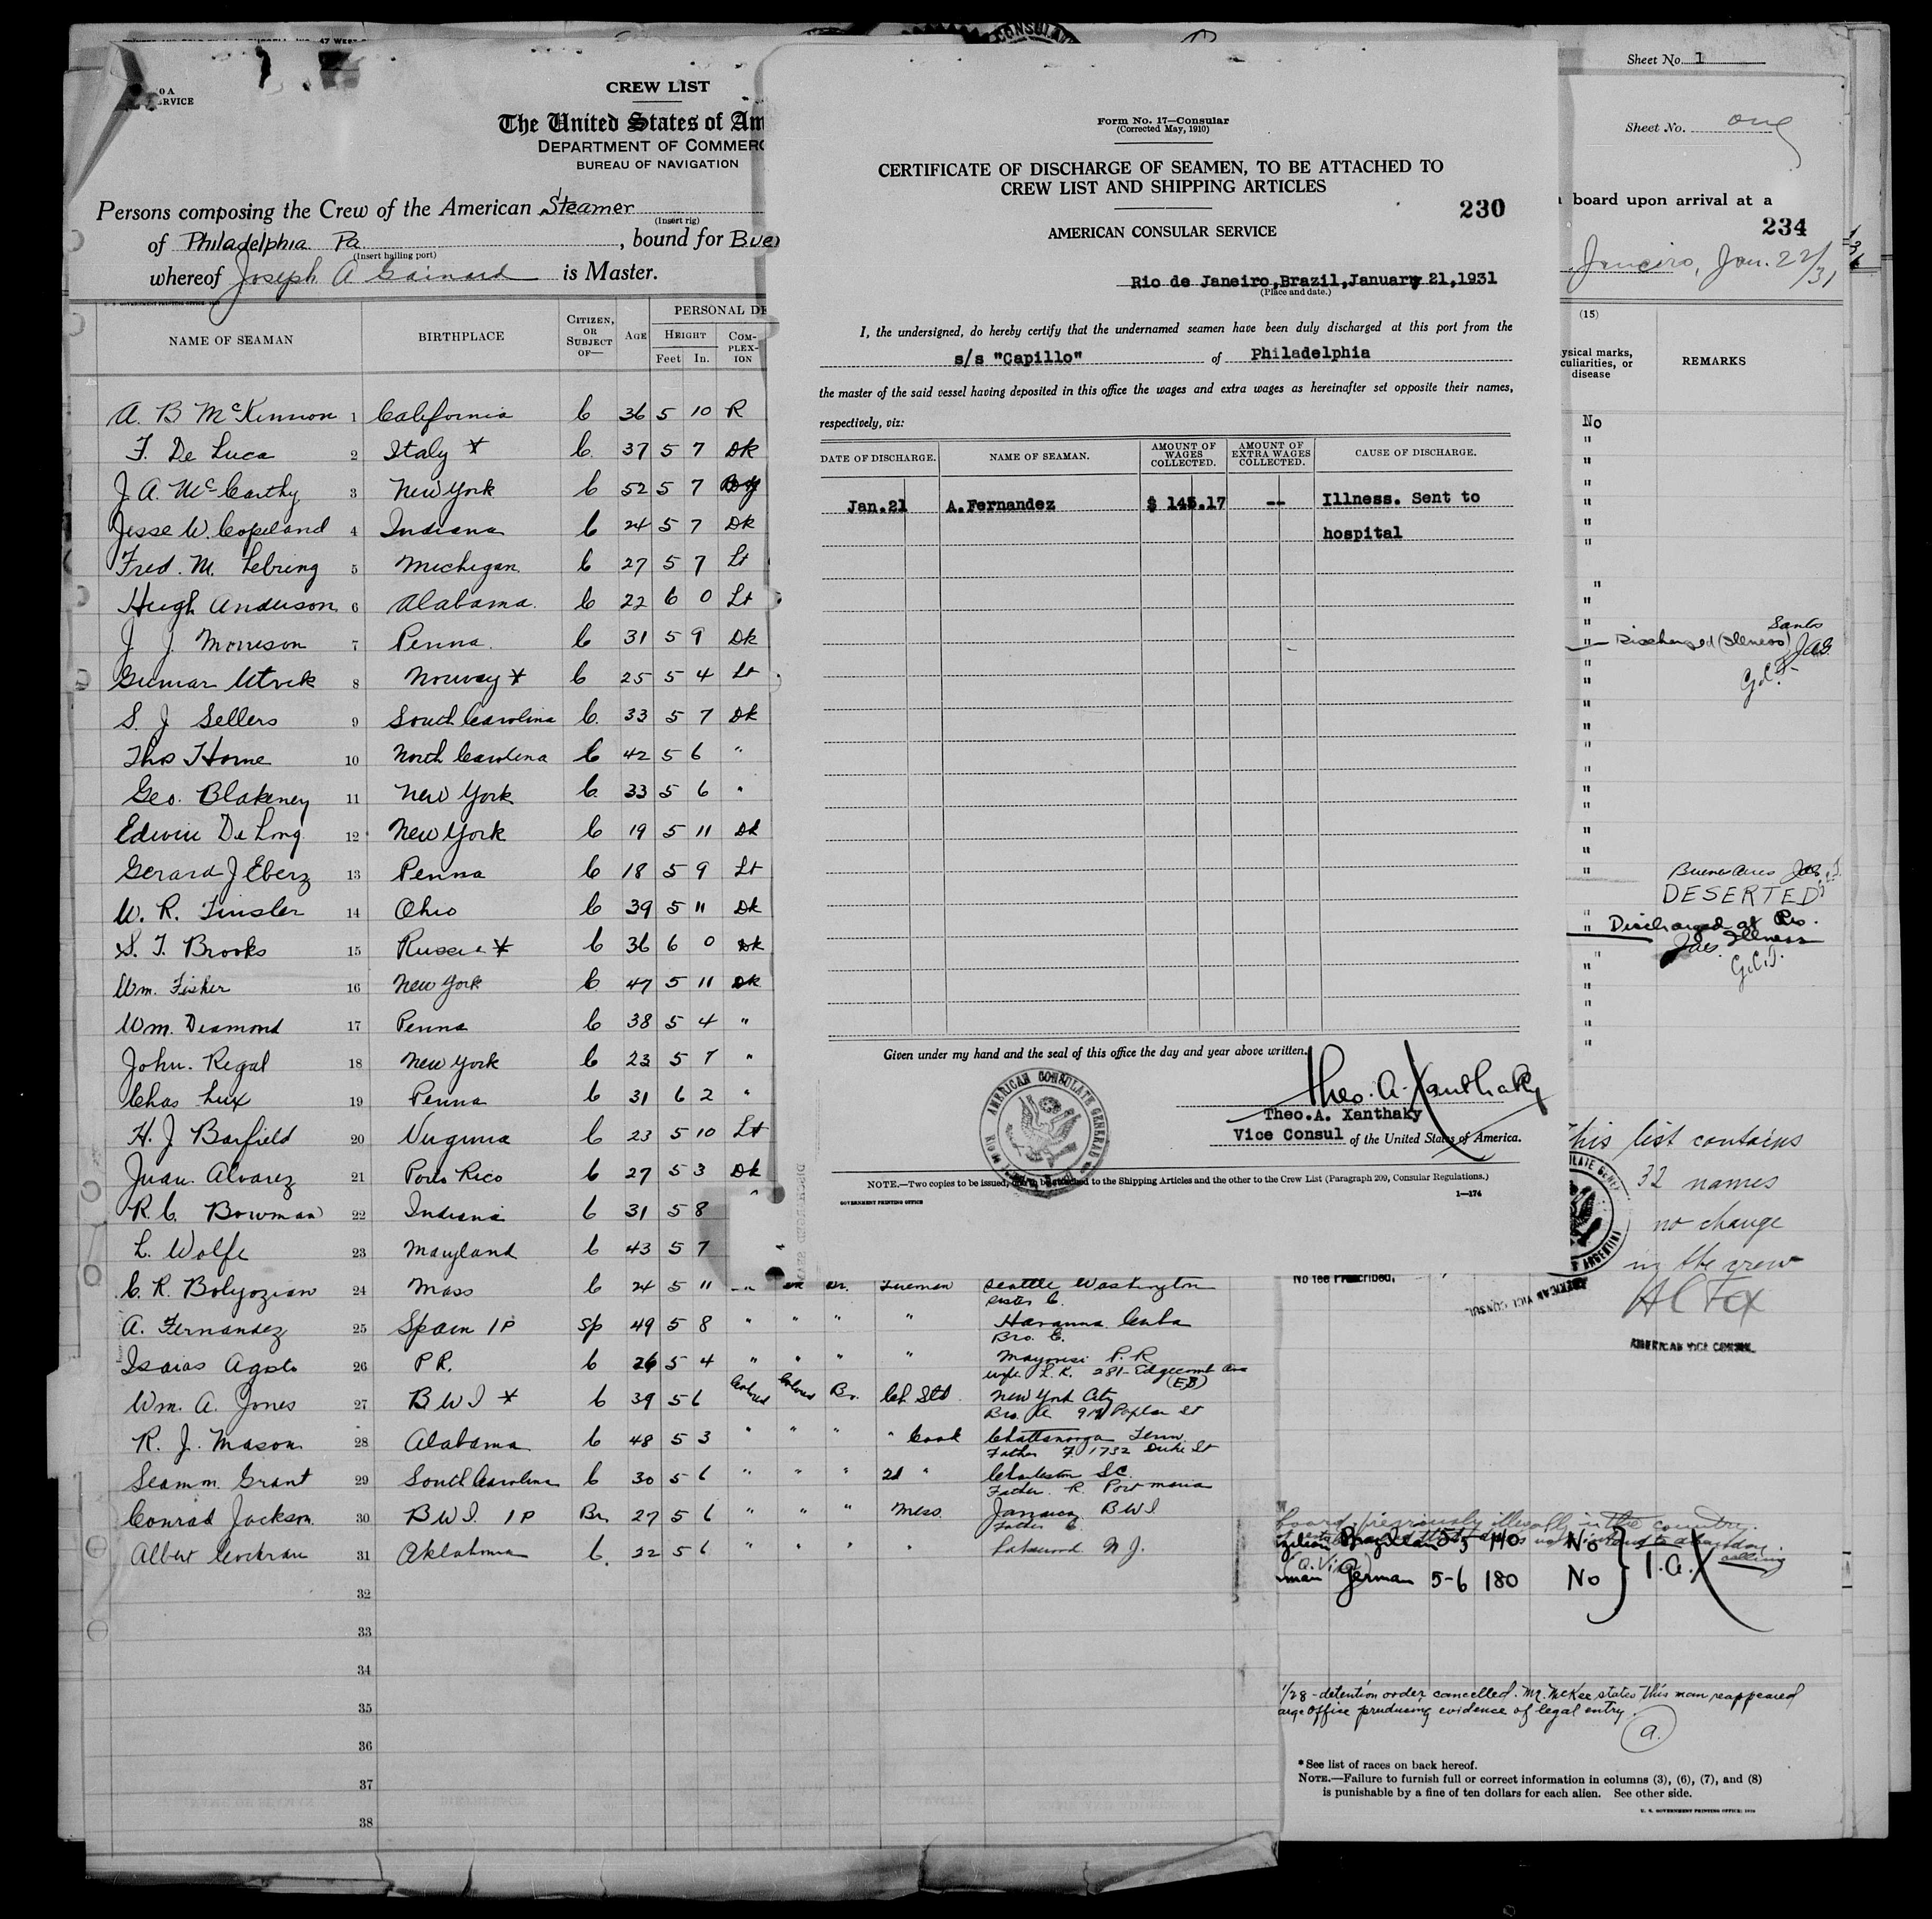 CREW LIST
The United States of Am
DEPARTMENT OF COMMERC
BUREAU OF NAVIGATION
Persons composing the Crew of the American Steamer
(Insert rig)
of Philadelphia Pa , bound for Bue
(Insert hailing port)
whereof Joseph A Gainard is Master.
PERSONAL DE
NAME OF SEAMAN BIRTHPLACE CITIZEN, OR SUBJECT OF— AGE HEIGHT Feet In. COM-PLEX-ION
A. B McKinnon 1 California C 36 5 10 R
F. De Luca 2 Italy * C. 37 5 7 Dk
J. A. McCarthy 3 New York C 52 5 7
Jesse W. Copeland 4 Indiana C 24 5 7 Dk
Fred. M. Lebring 5 Michigan C 27 5 7 Lt
Hugh Anderson 6 Alabama. C 22 6 0 Lt
J. J. Morrison 7 Penna. C 31 5 9 Dk
Gunnar Utvik 8 Norway * C 25 5 4 Lt
S. J Sellers 9 South Carolina C. 33 5 7 Dk
Thos Horne 10 North Carolina C 42 5 6 "
Geo. Blakeney 11 New York C. 33 5 6 "
Edwin De Long. 12 New York C 19 5 11 Dk
Gerard J Eberz 13 Penna C 18 5 9 Lt
W. R. Tinsler 14 Ohio C 39 5 11 Dk
S. T. Brooks 15 Russia * C 36 6 0 Dk
Wm. Fisher 16 New York C 47 5 11 Dk
Wm. Diamond 17 Penna C 38 5 4 "
John. Regal 18 New York C 23 5 7 "
Chas Lux 19 Penna C 31 6 2 "
H. J Barfield 20 Virginia C 23 5 10 Lt
Juan Alvarez 21 Porto Rico C 27 5 3 Dk
R. C. Bowman 22 Indiana C 31 5 8 "
L. Wolfe 23 Maryland C 43 5 7
C. R. Bolyozian 24 Mass C 24 5 11 Fireman Seattle Washington
Sister C.
A. Fernandez 25 Spain 1P Sp 49 5 8 " " " " Havanna Cuba
Bro. C.
Isaias Agosto 26 P R. C 26 5 4 " " " " Mayouesi P. R
wife L. K. 281- Edgecomb Ave
(EB)
Wm. A. Jones 27 B W I * C 39 5 6 Colored Colored Br. Ch. Std. New York City
Bro. A 919 Poplar St
R. J. Mason 28 Alabama C 48 5 3 " " " " Cook Chattanooga Tenn.
Father F. 1732 Duke St
Seamm. Grant 29 South Carolina C 30 5 6 " " " 2d " Charleston SC.
Father. R. Port maria
Conrad Jackson 30 B W I. 1P Br. 27 5 6 " " " Mess. Jamaica B W I.
Father C.
Albert Cochran 31 Oklahoma C. 22 5 6 " " " " Lakewood N. J.
32
33
34
35
36
37
38
Form No. 17—Consular
(Corrected May, 1910)
CERTIFICATE OF DISCHARGE OF SEAMEN, TO BE ATTACHED TO
CREW LIST AND SHIPPING ARTICLES
230
AMERICAN CONSULAR SERVICE
Rio de Janeiro,Brazil,January 21,1931
(Place and date.)
I, the undersigned, do hereby certify that the undernamed seamen have been duly discharged at this port from the
s/s "Capillo" of Philadelphia
the master of the said vessel having deposited in this office the wages and extra wages as hereinafter set opposite their names,
respectively, viz:
DATE OF DISCHARGE. NAME OF SEAMAN. AMOUNT OF WAGES COLLECTED. AMOUNT OF EXTRA WAGES COLLECTED. CAUSE OF DISCHARGE.
Jan.21 A.Fernandez $ 145.17 -- Illness. Sent to
hospital
Given under my hand and the seal of this office the day and year above written.
AMERICAN CONSULATE GENERAL
Theo. A. Xanthaky
Theo.A. Xanthaky
Vice Consul of the United States of America.
NOTE.—Two copies to be issued, one to be attached to the Shipping Articles and the other to the Crew List (Paragraph 209, Consular Regulations.)
GOVERNMENT PRINTING OFFICE
1—174
Sheet No. 1
Sheet No. one
board upon arrival at a
234
Janeiro, Jan. 22/31
(15)
ysical marks,
culiarities, or
disease
REMARKS
No
Santos
Discharged (Illness) JAG.
G.C.T.
Buenos Aires JAG
DESERTED
Discharged at Rio.
JAG. Illness
G.C.T.
This list contains
32 names
no change
in the crew
H C Fox
AMERICAN VICE CONSUL
No fee Prescribed,
AMERICAN VICE CONSUL
board previously illegally in the country.
Brazilian 5-5 140 No
man German 5-6 180 No
1/28 - detention order cancelled. Mr. McKee states this man reappeared
arge Office producing evidence of legal entry.
a.
*See list of races on back hereof.
NOTE.—Failure to furnish full or correct information in columns (3), (6), (7), and (8)
is punishable by a fine of ten dollars for each alien. See other side.